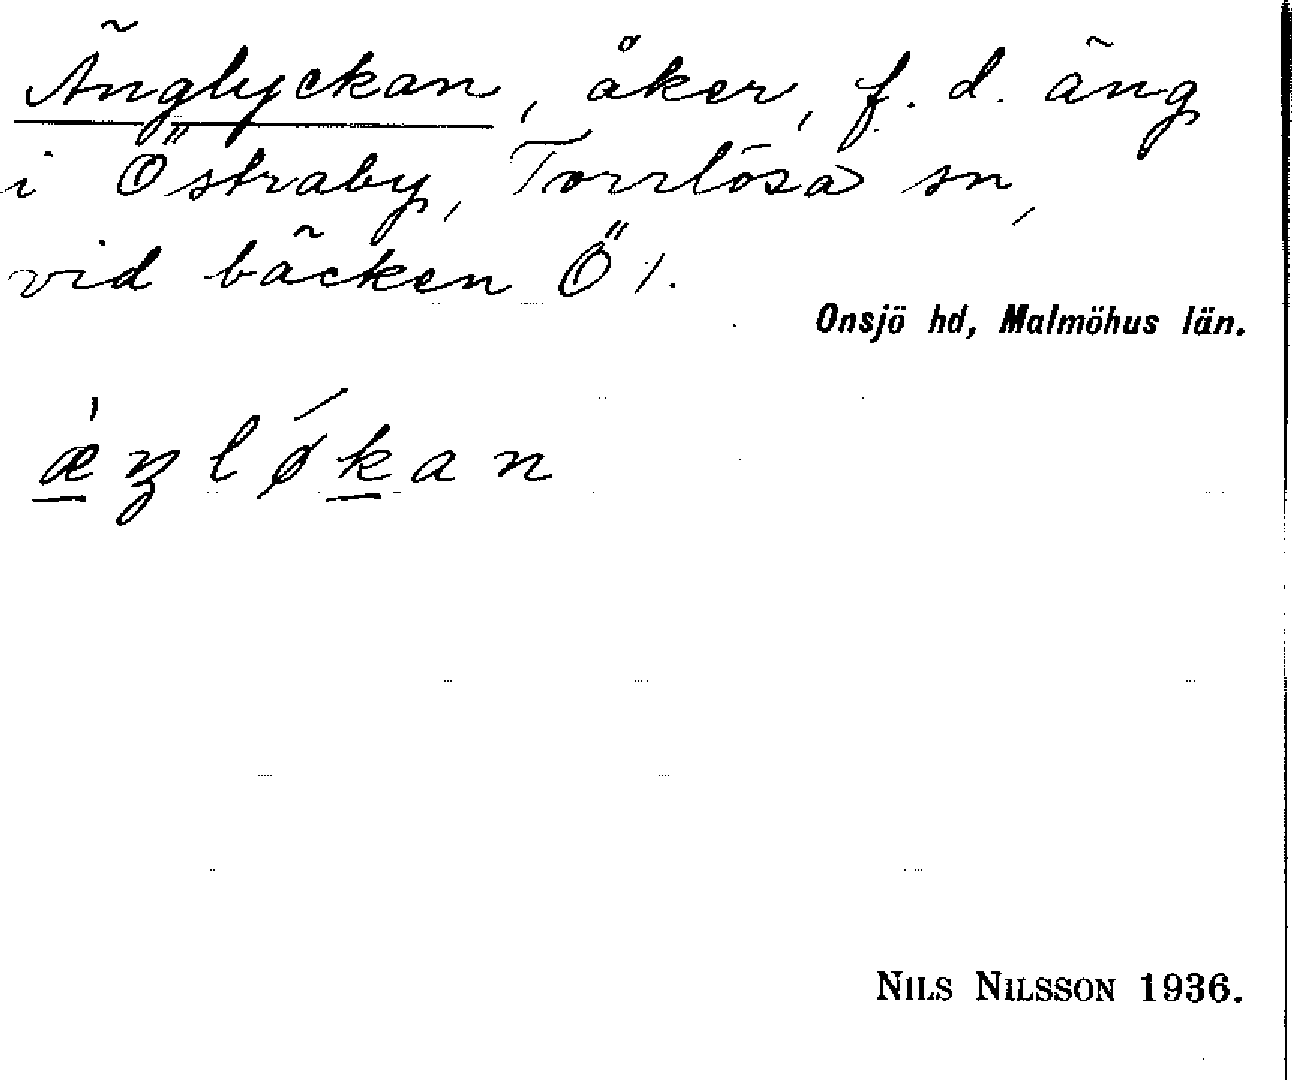 Änglyckan, åker, f. d. äng
i Östraby, Torrlösa sn,
vid bäcken Ö 1.
Onsjö hd, Malmöhus län.
æ̀ŋlǿkan
NILS NILSSON 1936.